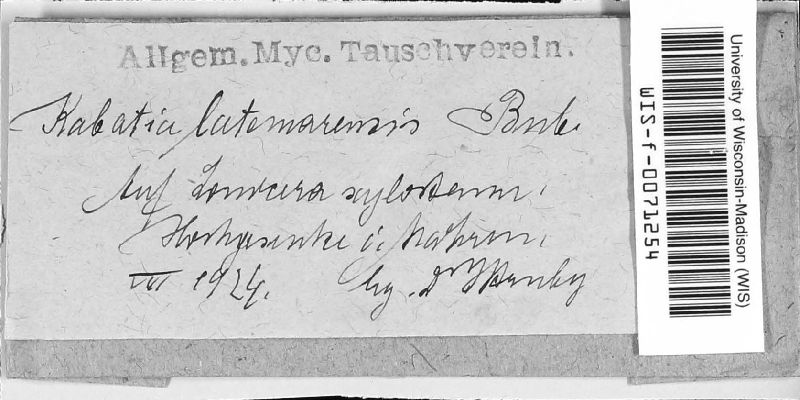 Allgem. Myc. Tauschverein.
Kabatia latemarensis Bub.
Auf Lonicera xylosteum.
Hochgesenke i. Mähren.
1924. lg. Dr
University of Wisconsin-Madison (WIS)
WIS-f-0071254